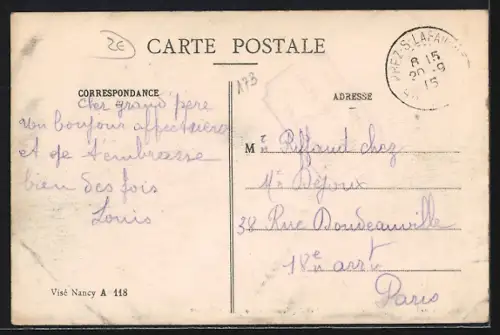 2E
CARTE POSTALE
173
PREZ-S-LAFAUCHE
8 15
20 -9
15
CORRESPONDANCE
ADRESSE
Cher grand'père
un bonjour affectueux
et je t'embrasse
bien des fois
Louis
Mr Riffaud chez
Mr Déjoux
38 Rue Doudeauville
18e arrt
Paris
Visé Nancy A 118